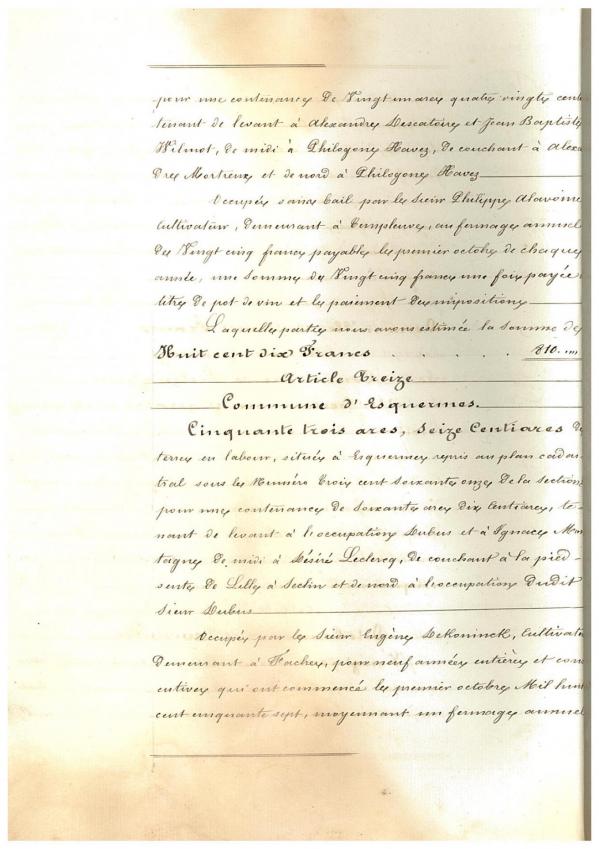 pour une contenance de Vingt un ares quatre vingts cent
tenant de levant à Alexandre Descatoire et Jean Baptiste
Wilmot, de midi à Philogone Havez, de couchant à Alexa
dre Mortreux et de nord à Philogone Havez
Occupée sans bail par le Sieur Philippe Alavoine
Cultivateur, demeurant à Templeuve, au fermage annuel
de Vingt cinq francs payable le premier octobre de chaque
année, une somme de Vingt cinq francs une fois payée
titre de pot de vin et le paiement des impositions
Laquelle partie nous avons estimée la somme de
Huit cent dix Francs . . . . . 810. "
Article Treize
Commune d'Esquermes.
Cinquante trois ares, Seize Centiares De
terre en labour, située à Esquermes repris au plan cadas
tral sous le Numéro Trois cent soixante onze de la section
pour une contenance de Soixante ares dix Centiares, te
nant de levant à l'occupation Dubus et à Ignace Mon
taigne de midi à Désiré Leclercq, de couchant à la pied-
sente de Lille à Seclin et de nord à l'occupation dudit
Sieur Dubus
Occupée par le Sieur Eugène Dekoninck, Cultivate
demeurant à Faches, pour neuf années entières et cons
cutives qui ont commencé le premier octobre Mil huit
cent cinquante sept, moyennant un fermage annuel